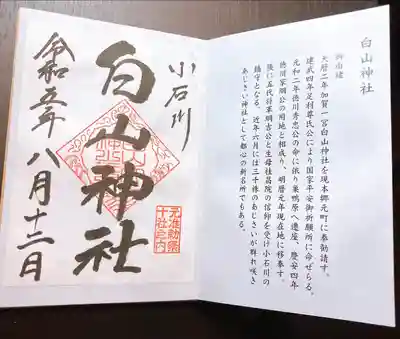 白山神社
御由緒
天暦二年加賀一宮白山神社を現本郷元町に奉勧請す。
建武四年足利尊氏公により国家平安御祈願所に命ぜらる。
元和二年徳川秀忠公の命に依り巣鴨原へ遷座、慶安四年
徳川家綱公の用地と相成り、明暦元年現在地に移奉す。
後に五代将軍綱吉公と生母桂昌院の信仰を受け小石川の
鎮守となる。近年六月には三千株のあじさいが群れ咲き
あじさい神社として都心の新名所でもある。
小石川
白山神社
元准勅祭
十社之内
令和五年八月十二日